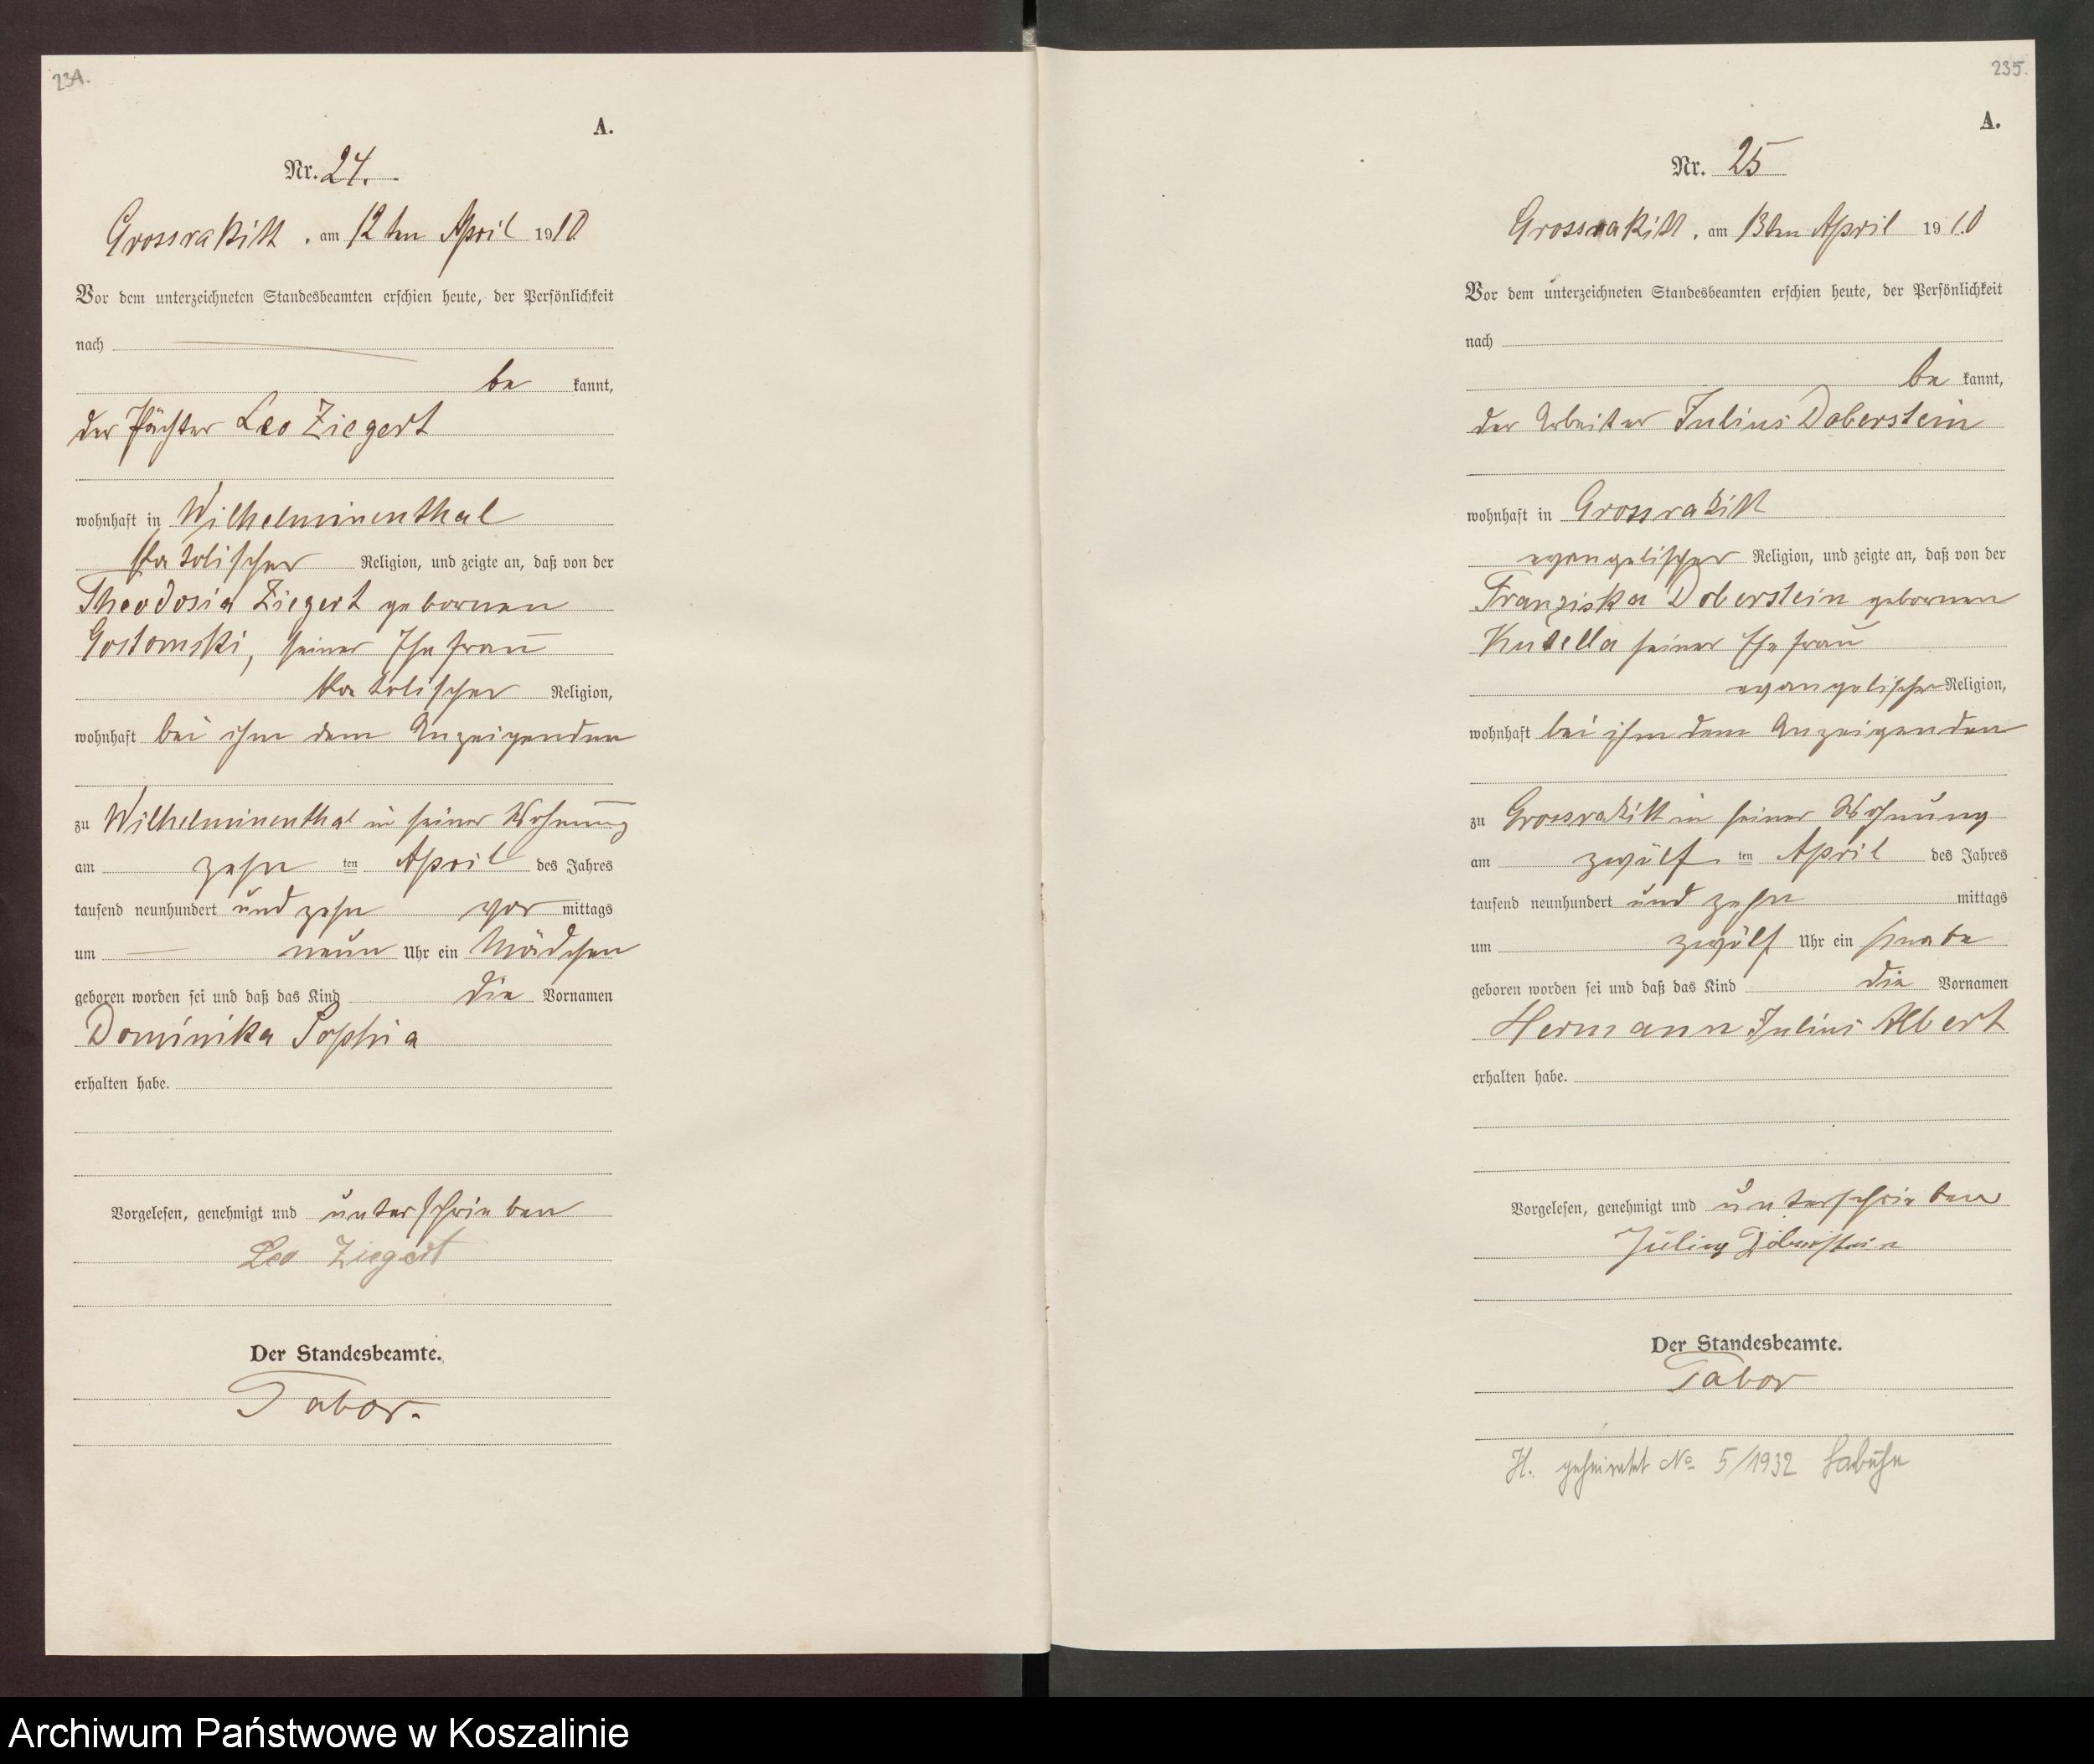 234.
A.
Nr. 24.
Grossrakitt, am 12ten April 1910
Vor dem unterzeichneten Standesbeamten erschien heute, der Persönlichkeit
nach
be kannt,
der Pächter Leo Ziegert
wohnhaft in Wilhelminenthal
katolischer Religion, und zeigte an, daß von der
Theodosia Ziegert gebornen
Gostomski, seiner Ehefrau
katolischer Religion,
wohnhaft bei ihm dem Anzeigenden
zu Wilhelminenthal in seiner Wohnung
am zehn ten April des Jahres
tausend neunhundert und zehn vor mittags
um neun Uhr ein Mädchen
geboren worden sei und daß das Kind die Vornamen
Dominika Sophia
erhalten habe.
Vorgelesen, genehmigt und unterschrieben
Leo Ziegert
Der Standesbeamte.
Tabor.
235.
A.
Nr. 25
Grossrakitt, am 13ten April 1910
Vor dem unterzeichneten Standesbeamten erschien heute, der Persönlichkeit
nach
be kannt,
der Arbeiter Julius Doberstein
wohnhaft in Grossrakitt
evangelischer Religion, und zeigte an, daß von der
Franziska Doberstein gebornen
seiner Ehefrau
evangelischer Religion,
wohnhaft bei ihm dem Anzeigenden
zu Grossrakitt in seiner Wohnung
am zwölf ten April des Jahres
tausend neunhundert und zehn mittags
um zwölf Uhr ein Knabe
geboren worden sei und daß das Kind die Vornamen
Hermann Julius Albert
erhalten habe.
Vorgelesen, genehmigt und unterschrieben
Julius Doberstein
Der Standesbeamte.
Tabor
H. geheiratet No 5/1932 Labuhn
Archiwum Państwowe w Koszalinie